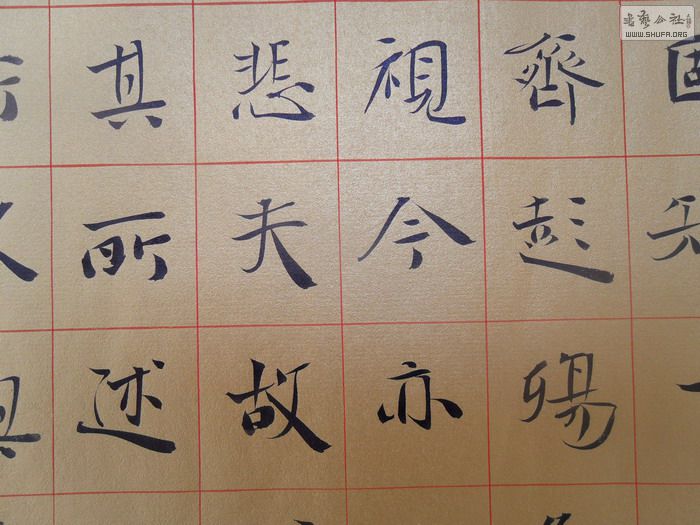 固知
齊彭殤
視今亦
悲夫故
其所述
書藝公社
WWW.SHUFA.ORG